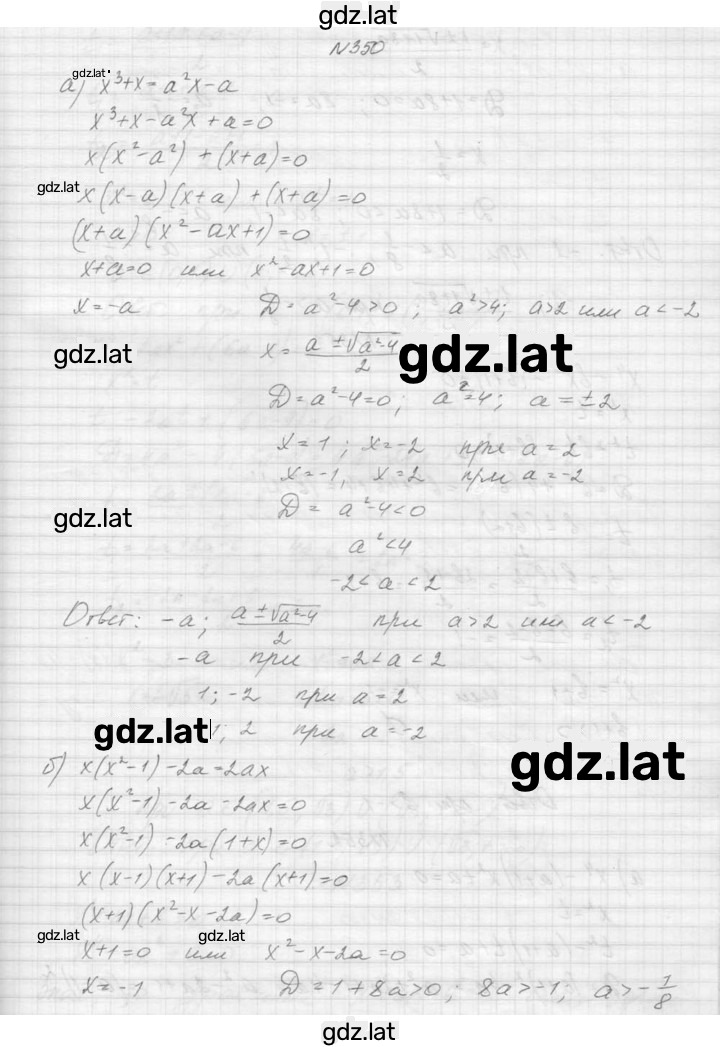 gdz.lat
N350
gdz.lat
а) x³+x=a²x-a
x³+x-a²x+a=0
x(x²-a²)+(x+a)=0
gdz.lat
x(x-a)(x+a)+(x+a)=0
(x+a)(x²-ax+1)=0
x+a=0 или x²-ax+1=0
x=-a Д=a²-4>0; a²>4; a>2 или a<-2
gdz.lat x=(a±√(a²-4))/2 gdz.lat
Д=a²-4=0; a²=4; a=±2
x=1; x=-2 при a=2
x=-1, x=2 при a=-2
gdz.lat Д= a²-4<0
a²<4
-2<a<2
Ответ: -a; (a±√(a²-4))/2 при a>2 или a<-2
-a при -2<a<2
1; -2 при a=2
gdz.lat 1; 2 при a=-2
gdz.lat
б) x(x²-1)-2a=2ax
x(x²-1)-2a-2ax=0
x(x²-1)-2a(1+x)=0
x(x-1)(x+1)-2a(x+1)=0
(x+1)(x²-x-2a)=0
gdz.lat gdz.lat
x+1=0 или x²-x-2a=0
x=-1 Д=1+8a>0; 8a>-1; a>-1/8
gdz.lat